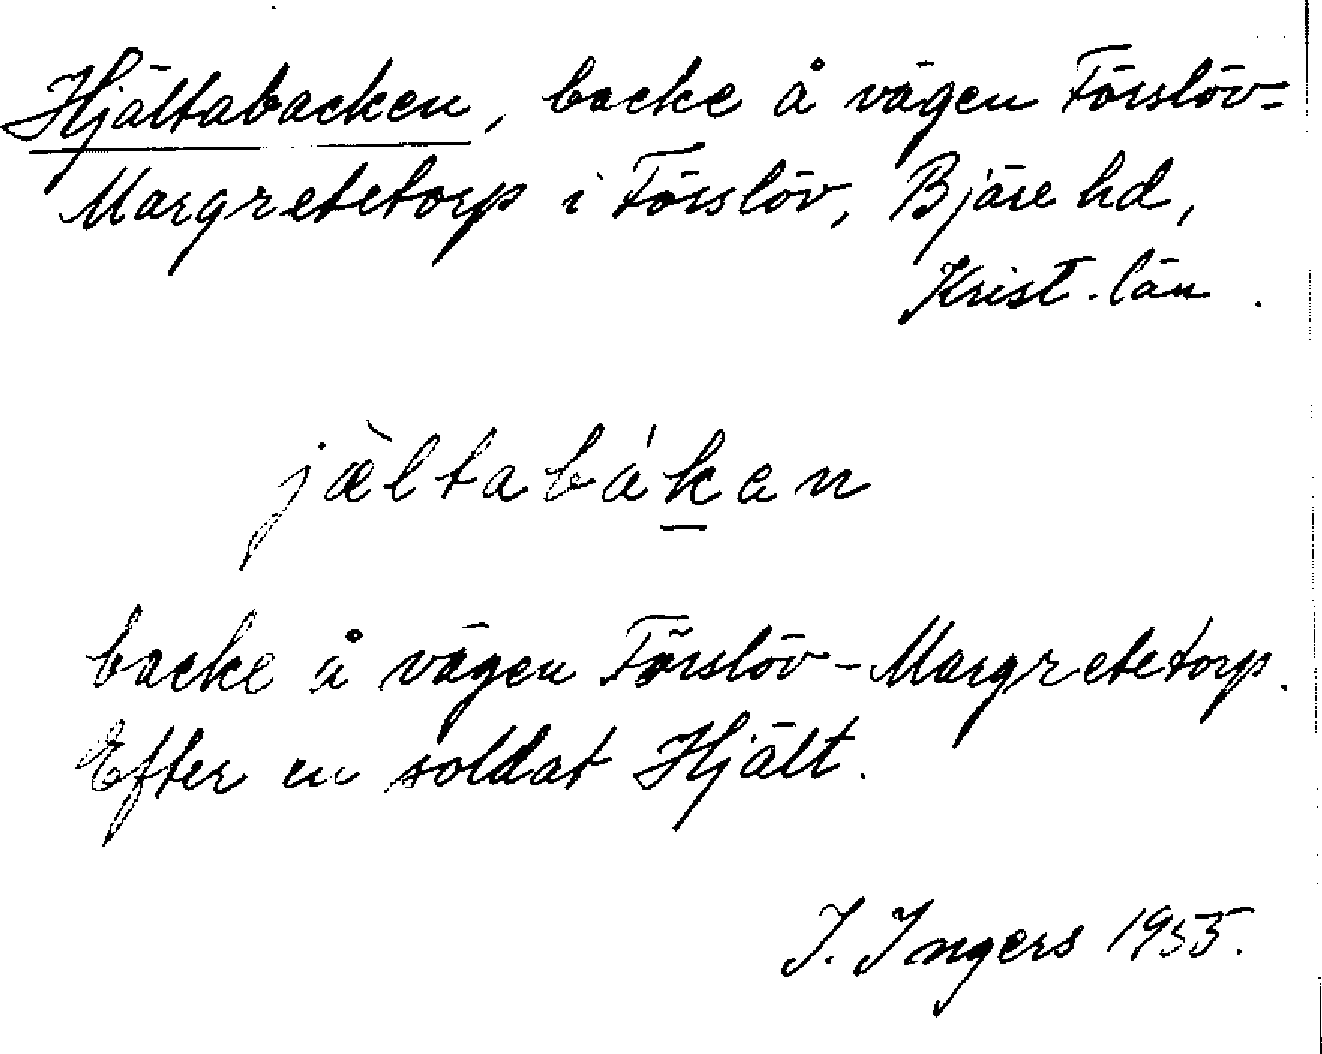 Hjältabacken, backe å vägen Förslöv=
Margretetorp i Förslöv, Bjäre hd,
Krist. län.
jæ̀ltabákan
backe å vägen Förslöv-Margretetorp.
Efter en soldat Hjält.
I. Ingers 1955.